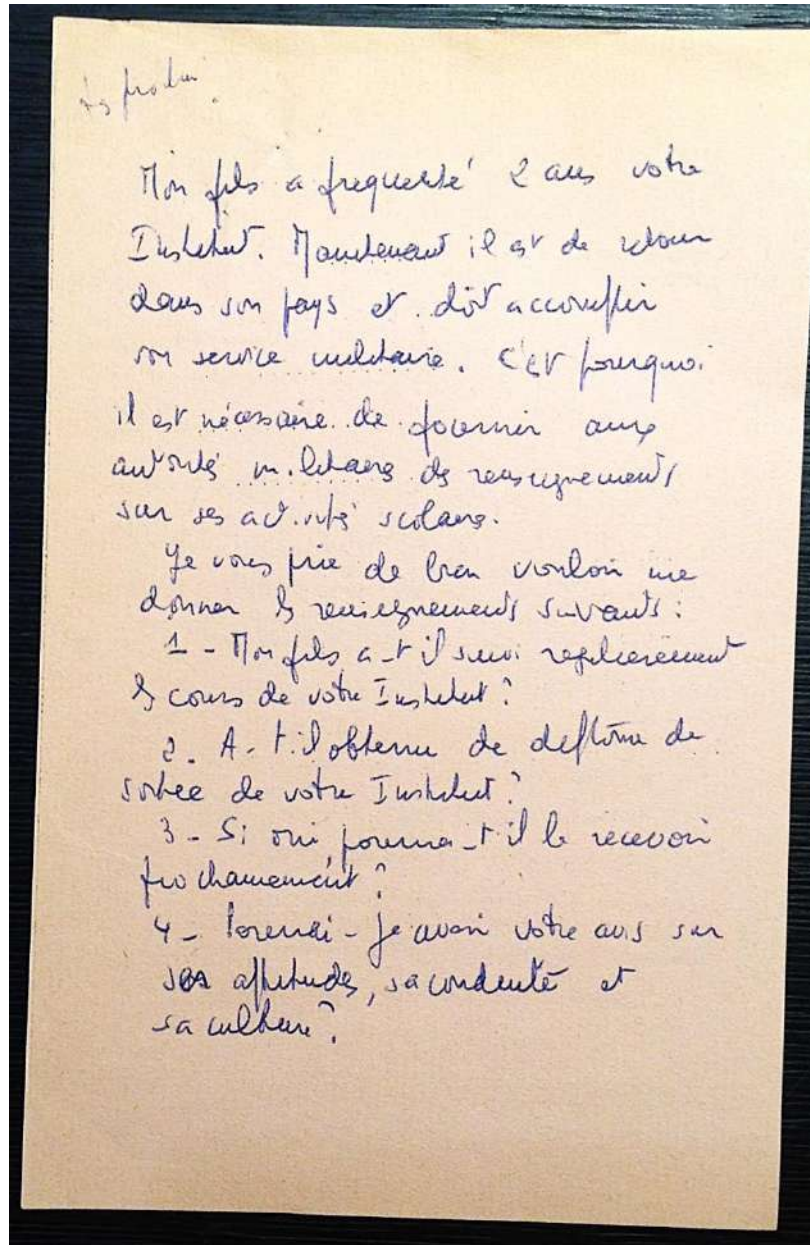 Mon fils a frequenté 2 ans votre
Institut. Maintenant il est de retour
dans son pays et doit accomplir
son service militaire. C'est pourquoi
il est nécessaire de fournir aux
autorités militaires des renseignements
sur ses activités scolaires.
Je vous prie de bien vouloir me
donner les renseignements suivants :
1 - Mon fils a-t-il suivi regulierement
les cours de votre Institut ?
2. A-t-il obtenu de diplôme de
sortie de votre Institut ?
3 - Si oui, pourra-t-il le recevoir
prochainement ?
4 - Pourrai-je avoir votre avis sur
ses aptitudes, sa conduite et
sa culture ?